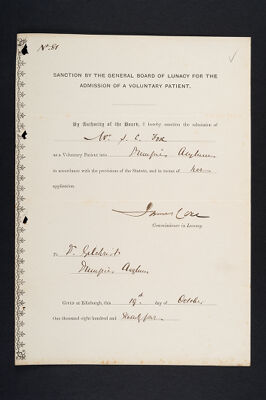 No. 81
SANCTION BY THE GENERAL BOARD OF LUNACY FOR THE
ADMISSION OF A VOLUNTARY PATIENT.
By Authority of the Board, I hereby sanction the admission of
Fox
as a Voluntary Patient into Dumfries Asylum
in accordance with the provisions of the Statute, and in terms of her
application.
James Coxe
Commissioner in Lunacy.
To Dr Gilchrist
Dumfries Asylum
Given at Edinburgh, this 19th day of October
One thousand eight hundred and